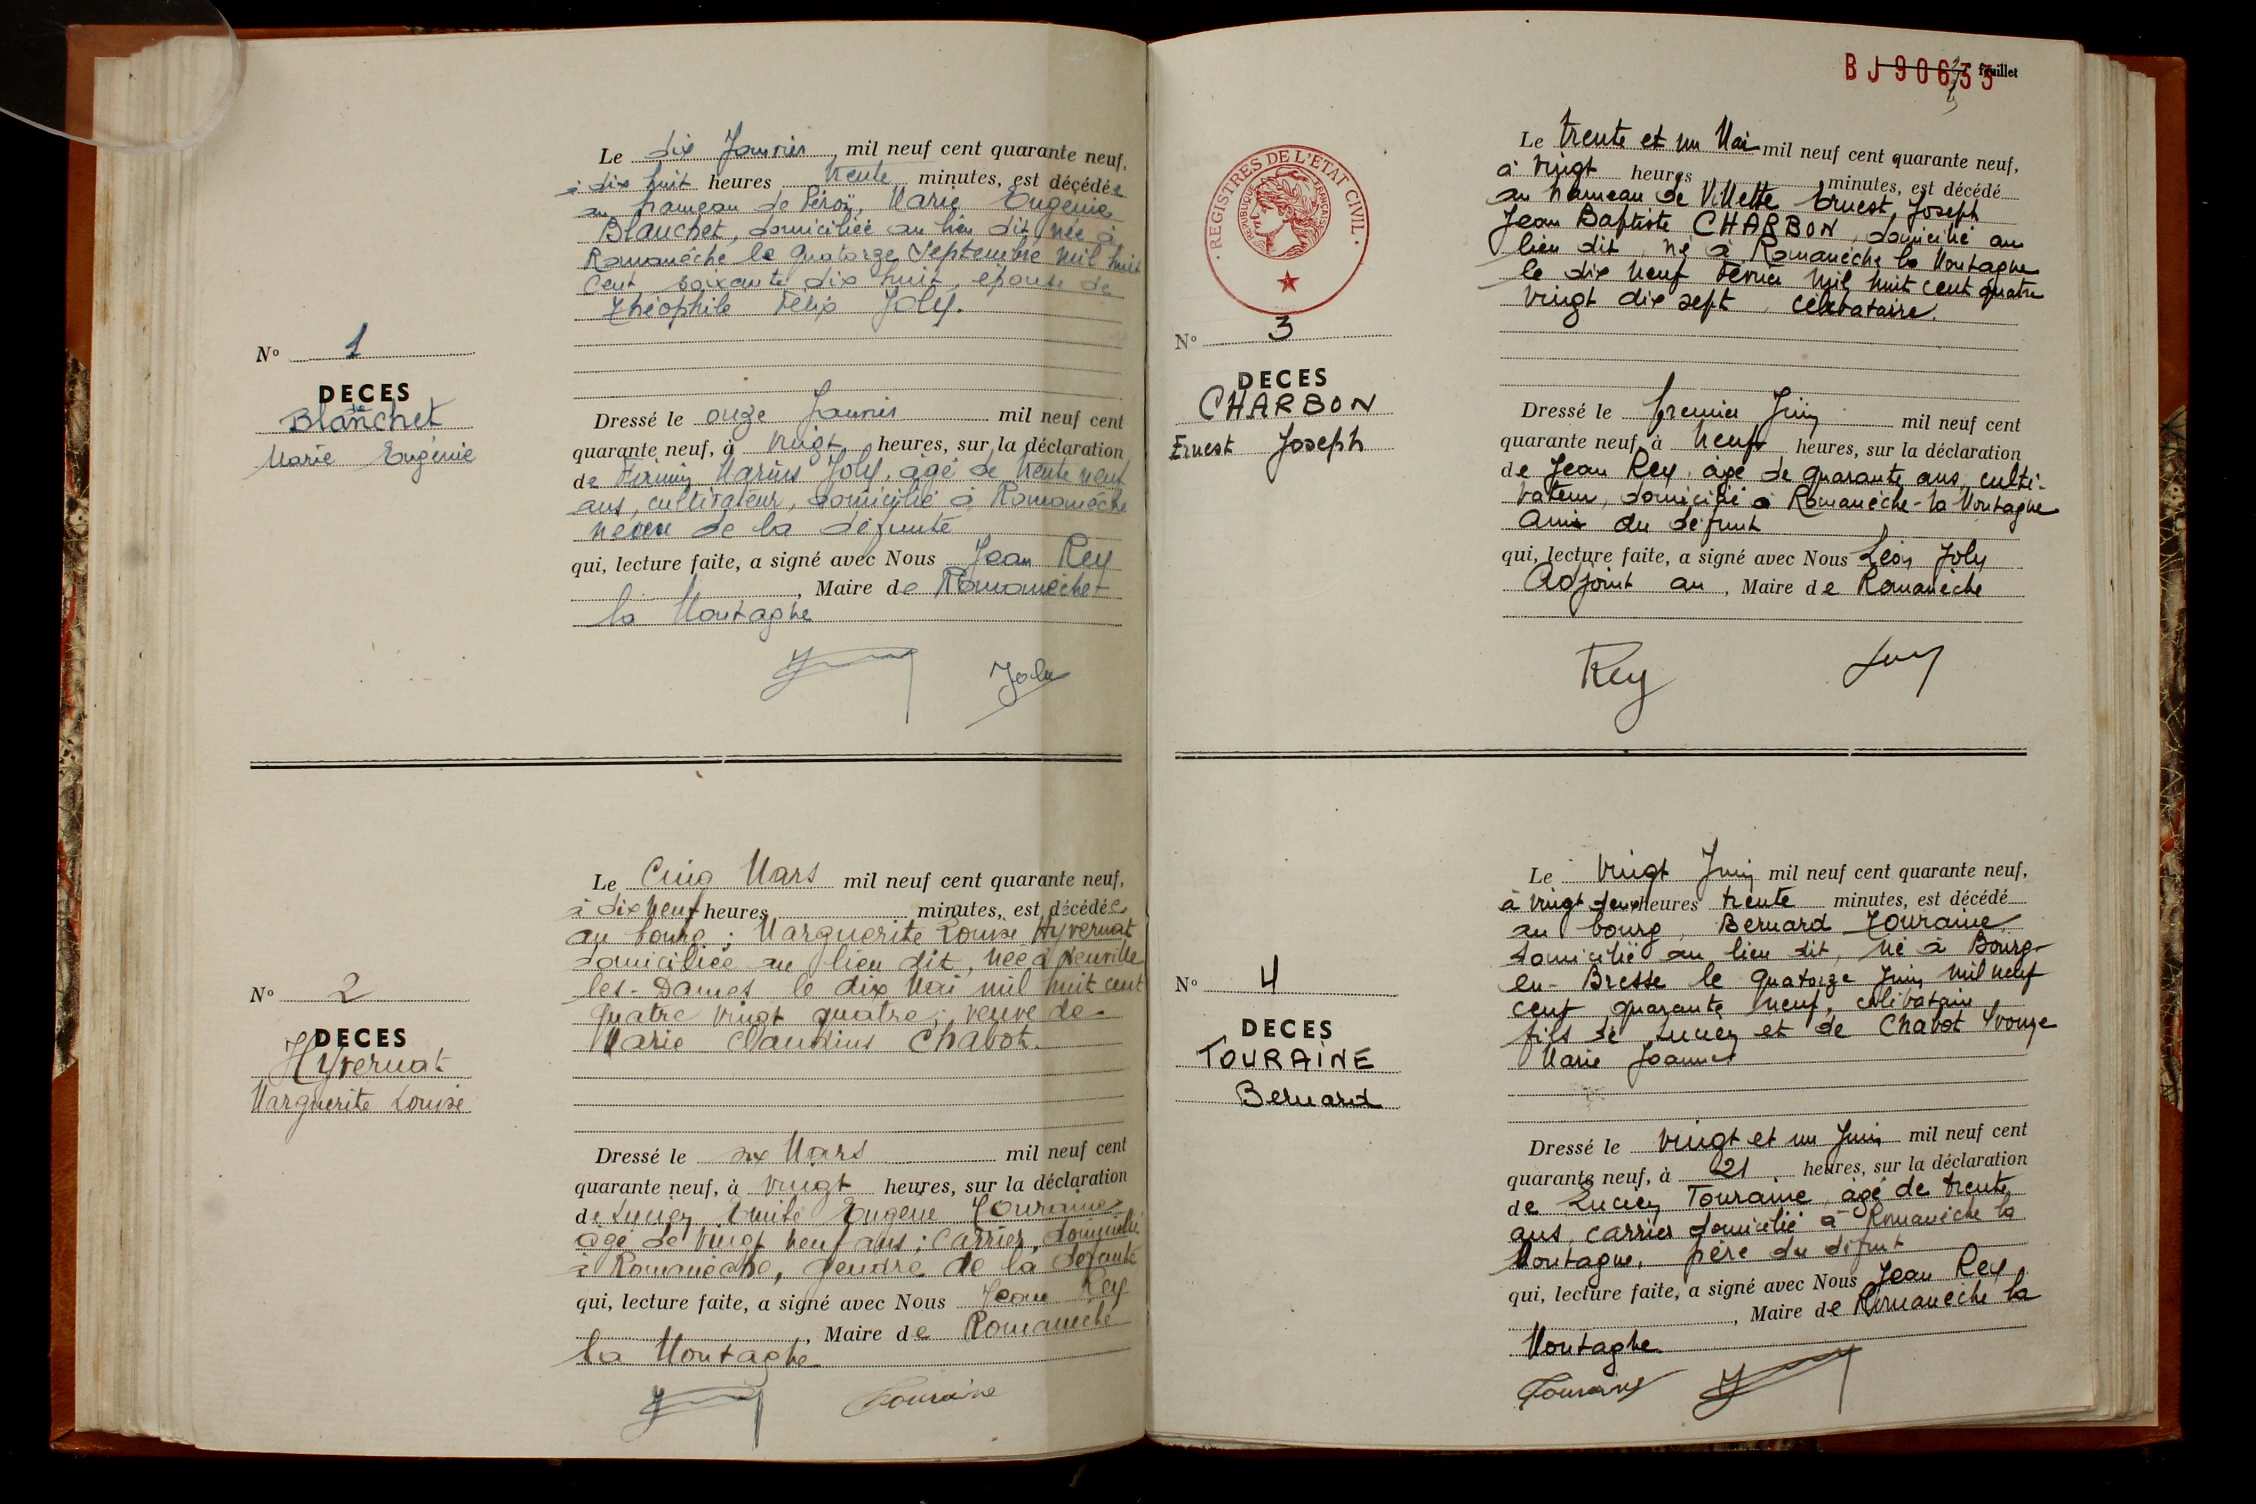 Le dix Janvier mil neuf cent quarante neuf,
à dix huit heures trente minutes, est décédée
au hameau de Marie Eugénie
Blanchet, domiciliée au lieu dit, née à
Romanèche le quatorze Septembre mil huit
cent soixante dix huit, épouse de
Théophile Félix Joly.
N° 1
DECES
de
Blanchet
Marie Eugénie
Dressé le onze Janvier mil neuf cent
quarante neuf, à vingt heures, sur la déclaration
de Firmin Marius Joly, âgé de trente neuf
ans, cultivateur, domicilié à Romanèche
neveu de la défunte
qui, lecture faite, a signé avec Nous Jean Rey
, Maire de Romanèche
la Montagne
Joly
Le Cinq Mars mil neuf cent quarante neuf,
à dix neuf heures minutes, est décédée
au bourg : Marguerite Louise Hyvernat
domiciliée au lieu dit, née à Neuville
les-Dames le dix Mai mil huit cent
quatre vingt quatre ; veuve de
Marie Claudius Chabot.
N° 2
DECES
Hyvernat
Marguerite Louise
Dressé le six Mars mil neuf cent
quarante neuf, à vingt heures, sur la déclaration
de Lucien Emile Eugène Touraine
âgé de vingt neuf ans ; carrier, domicilié
à Romanèche, gendre de la défunte
qui, lecture faite, a signé avec Nous Jean Rey
, Maire de Romanèche
la Montagne
Touraine
BJ90633 feuillet
REGISTRES DE L'ETAT CIVIL
REPUBLIQUE FRANÇAISE
Le trente et un Mai mil neuf cent quarante neuf,
à vingt heures minutes, est décédé
au hameau de Villette Ernest, Joseph
Jean Baptiste CHARBON, domicilié au
lieu dit, né à Romanèche la Montagne
le dix neuf Février mil huit cent quatre
vingt dix sept, célibataire.
N° 3
DECES
CHARBON
Ernest Joseph
Dressé le premier Juin mil neuf cent
quarante neuf, à neuf heures, sur la déclaration
de Jean Rey, âgé de quarante ans, culti-
vateur, domicilié à Romanèche-la Montagne
ami du défunt
qui, lecture faite, a signé avec Nous Léon Joly
Adjoint au , Maire de Romanèche
Rey
Le vingt Juin mil neuf cent quarante neuf,
à vingt deux heures trente minutes, est décédé
au bourg, Bernard Touraine
domicilié au lieu dit, né à Bourg-
en-Bresse le quatorze Juin mil neuf
cent quarante neuf, célibataire,
fils de Lucien et de Chabot Yvonne
Marie Joannès
N° 4
DECES
TOURAINE
Bernard
Dressé le vingt et un Juin mil neuf cent
quarante neuf, à 21 heures, sur la déclaration
de Lucien Touraine, âgé de trente
ans, carrier domicilié à Romanèche la
Montagne, père du défunt
qui, lecture faite, a signé avec Nous Jean Rey
, Maire de Romanèche la
Montagne
Touraine